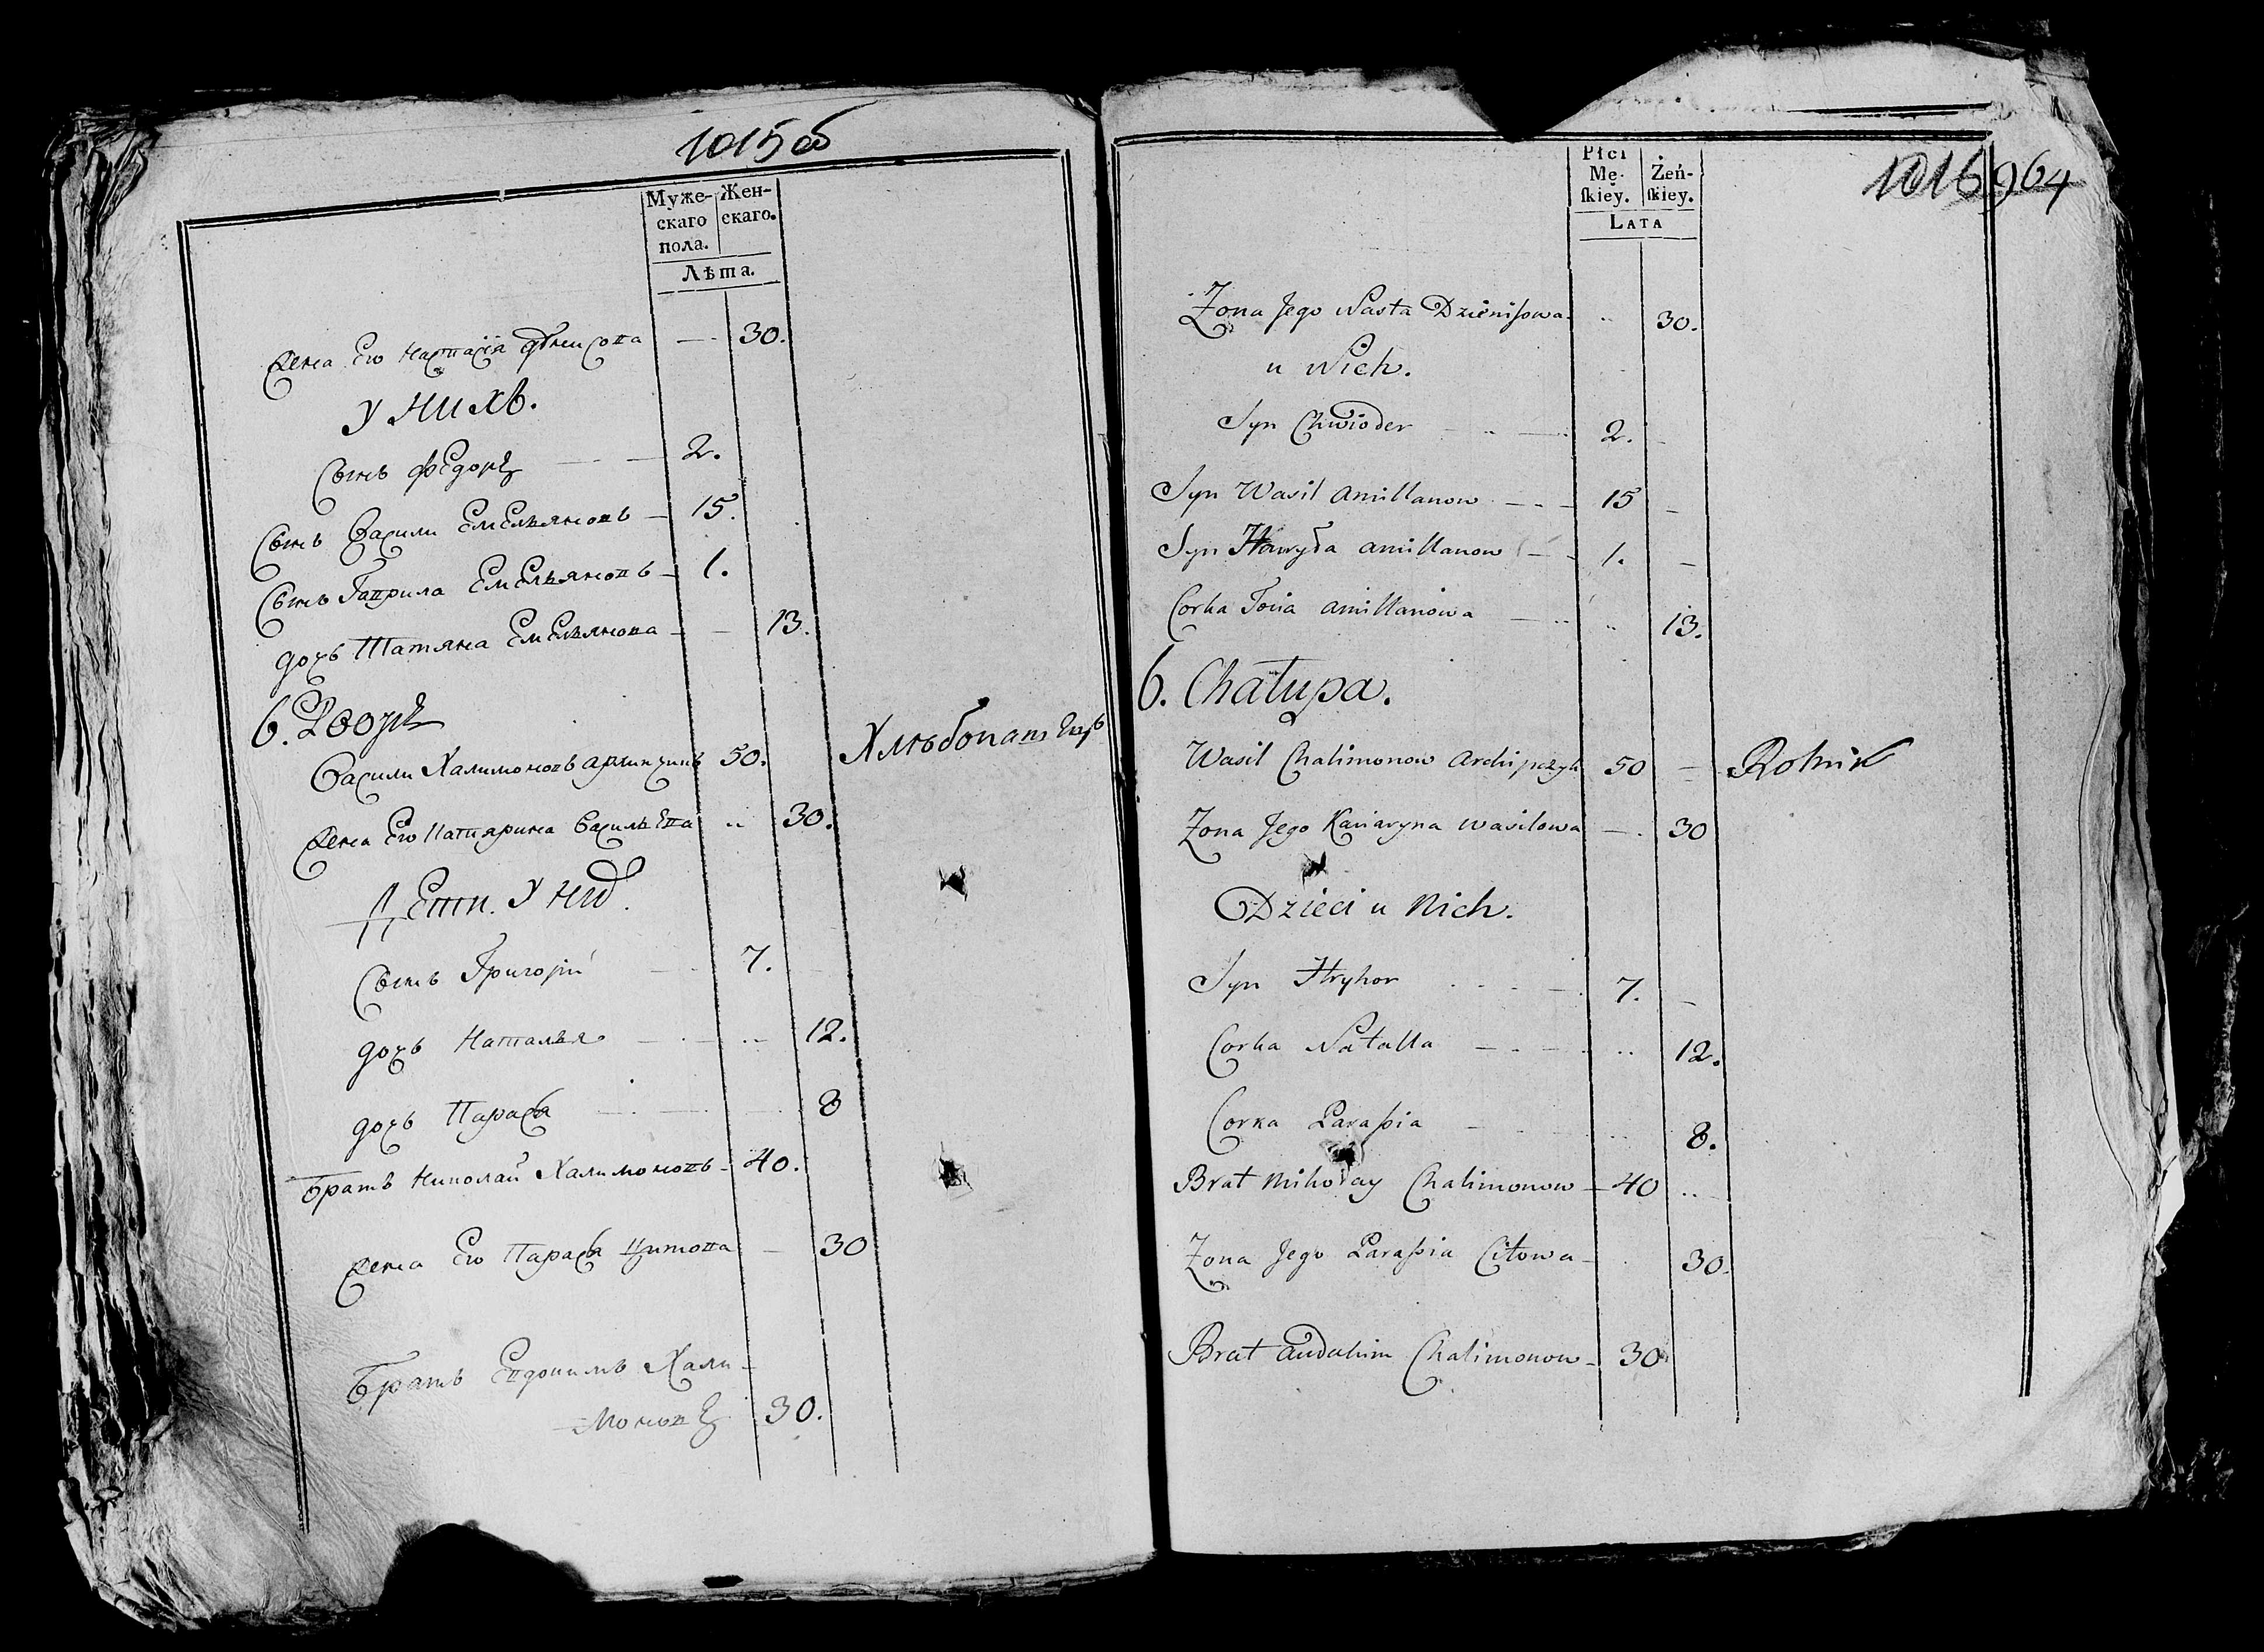 1015об
Муже-
скаго
пола.
Жен-
скаго.
Лѣта.
Жена Его Настасія Денисова — 30.
У Нихъ.
Сынъ Федоръ — 2.
Сынъ Васили Емельяновъ — 15.
Сынъ Гаврила Емельяновъ — 1.
дочь Татяна Емельянова — 13.
6. Дворъ
Васили Халимоновъ Архипчикъ 50. Хлѣбопашецъ
Жена Его Катярина Васильева .. 30.
Дети У них.
Сынъ Григорій 7.
дочь Наталья — .. 12.
дочь Парася — 8
братъ Николай Халимоновъ - 40.
Жена Его Парася Цитова — 30
братъ Евдокимъ Хали-
моновъ 30.
Płci
Mę-
skiey.
Żeń-
skiey.
Lata
1016 964
Zona Jego Nasta Dzienisowa .. 30.
u Nich.
Syn Chwioder — 2.
Syn Wasil Amillanow — 15
Syn Hawryła Amillanow — 1.
Corka Tacia Amillanowa — .. 13.
6. Chałupa.
Wasil Chalimonow Archipczyk 50 — Rolnik
Zona Jego Kaciaryna Wasilowa — 30
Dzieci u Nich.
Syn Hryhor — 7.
Corka Natalla — .. 12.
Corka Parasia — .. 8.
Brat Mikołay Chalimonow — 40 ..
Zona Jego Parasia Citowa — 30.
Brat Audakim Chalimonow — 30